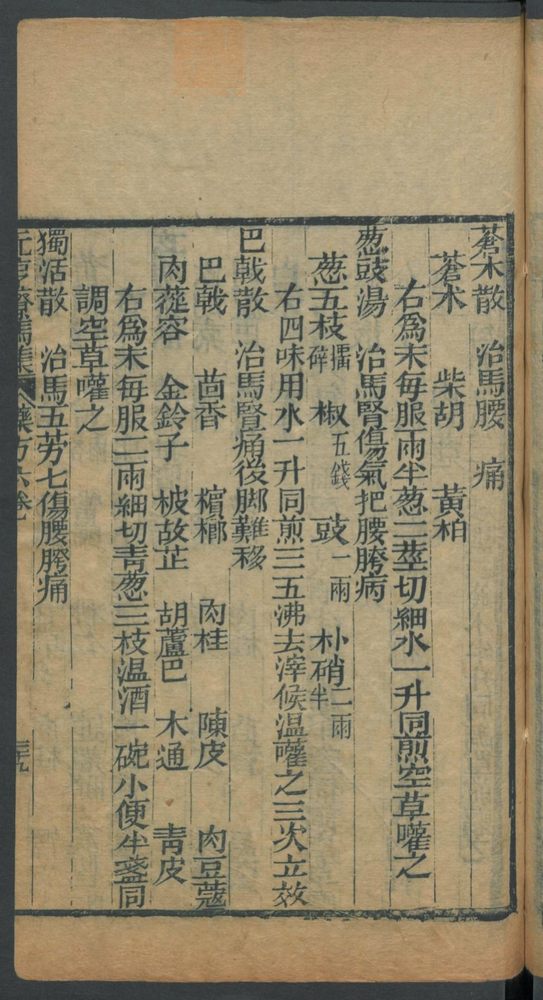 蒼术散 治馬腰 痛
蒼术 柴胡 黄柏
右爲末每服兩半葱二莖切細水一升同煎空草嚾之
葱豉湯 治馬腎傷氣把腰胯病
葱五枝擂碎 椒五錢 豉一兩 朴硝二兩半
右四味用水一升同煎三五沸去滓候温嚾之三次立效
巴戟散 治馬腎痛後脚難移
巴戟 茴香 檳榔 肉桂 陳皮 肉豆蔻
肉蓯容 金鈴子 破故芷 胡蘆巴 木通 青皮
右爲末每服二兩細切青葱三枝温酒一碗小便半盞同
調空草嚾之
獨活散 治馬五劳七傷腰胯痛
元亨療馬集 藥方六卷 三九